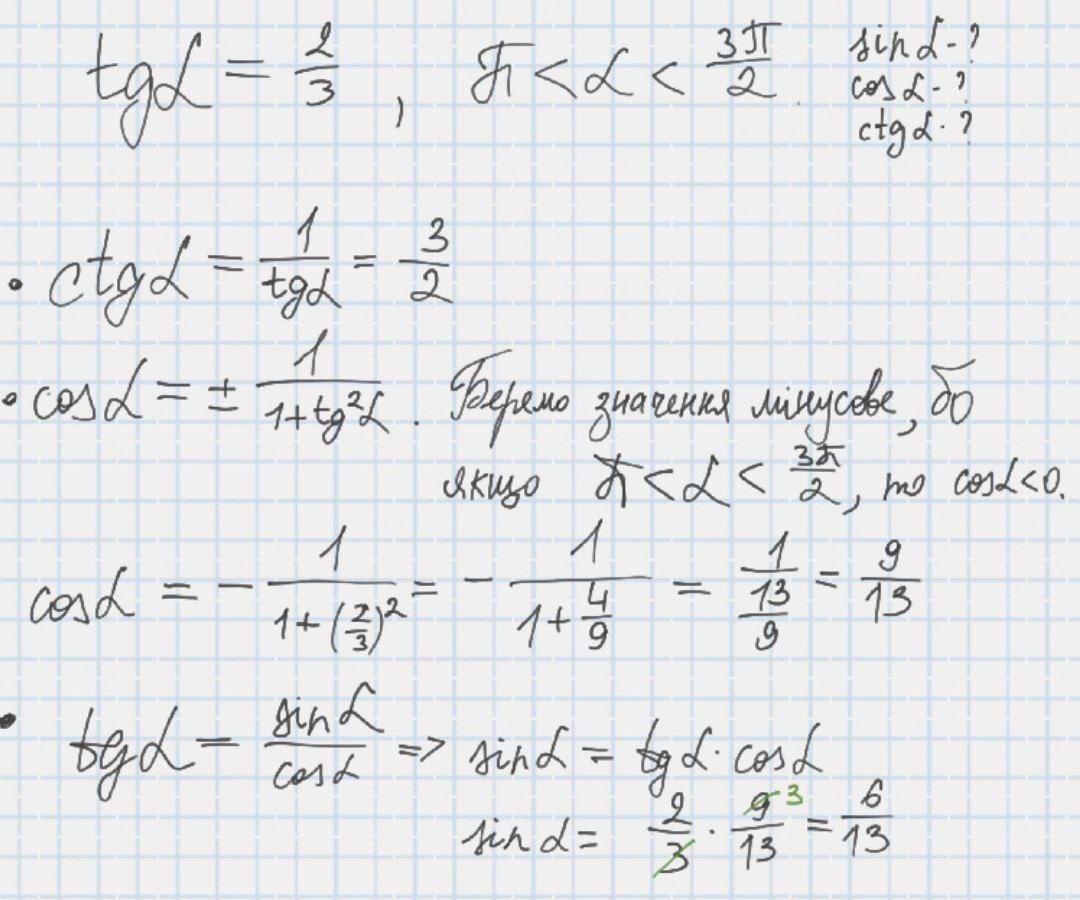 tgα = 2/3, π < α < 3π/2. sin α - ?
cos α - ?
ctg α - ?
• ctgα = 1/tgα = 3/2
• cosα = ± 1/(1+tg²α). Беремо значення мінусове, бо
якщо π < α < 3π/2, то cosα < 0.
cosα = - 1/(1+(2/3)²) = - 1/(1+4/9) = 1/(13/9) = 9/13
• tgα = sinα/cosα => sinα = tgα · cosα
sinα = 2/3 · 9/13 3 = 6/13